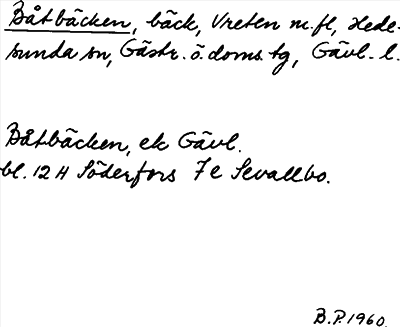 Båtbäcken, bäck, Vreten m.fl, Hede-
sunda sn, Gästr. ö. doms. tg, Gävl. l.
Båtbäcken, ek Gävl.
bl. 12 H Söderfors 7 e Sevallbo.
B.P. 1960.